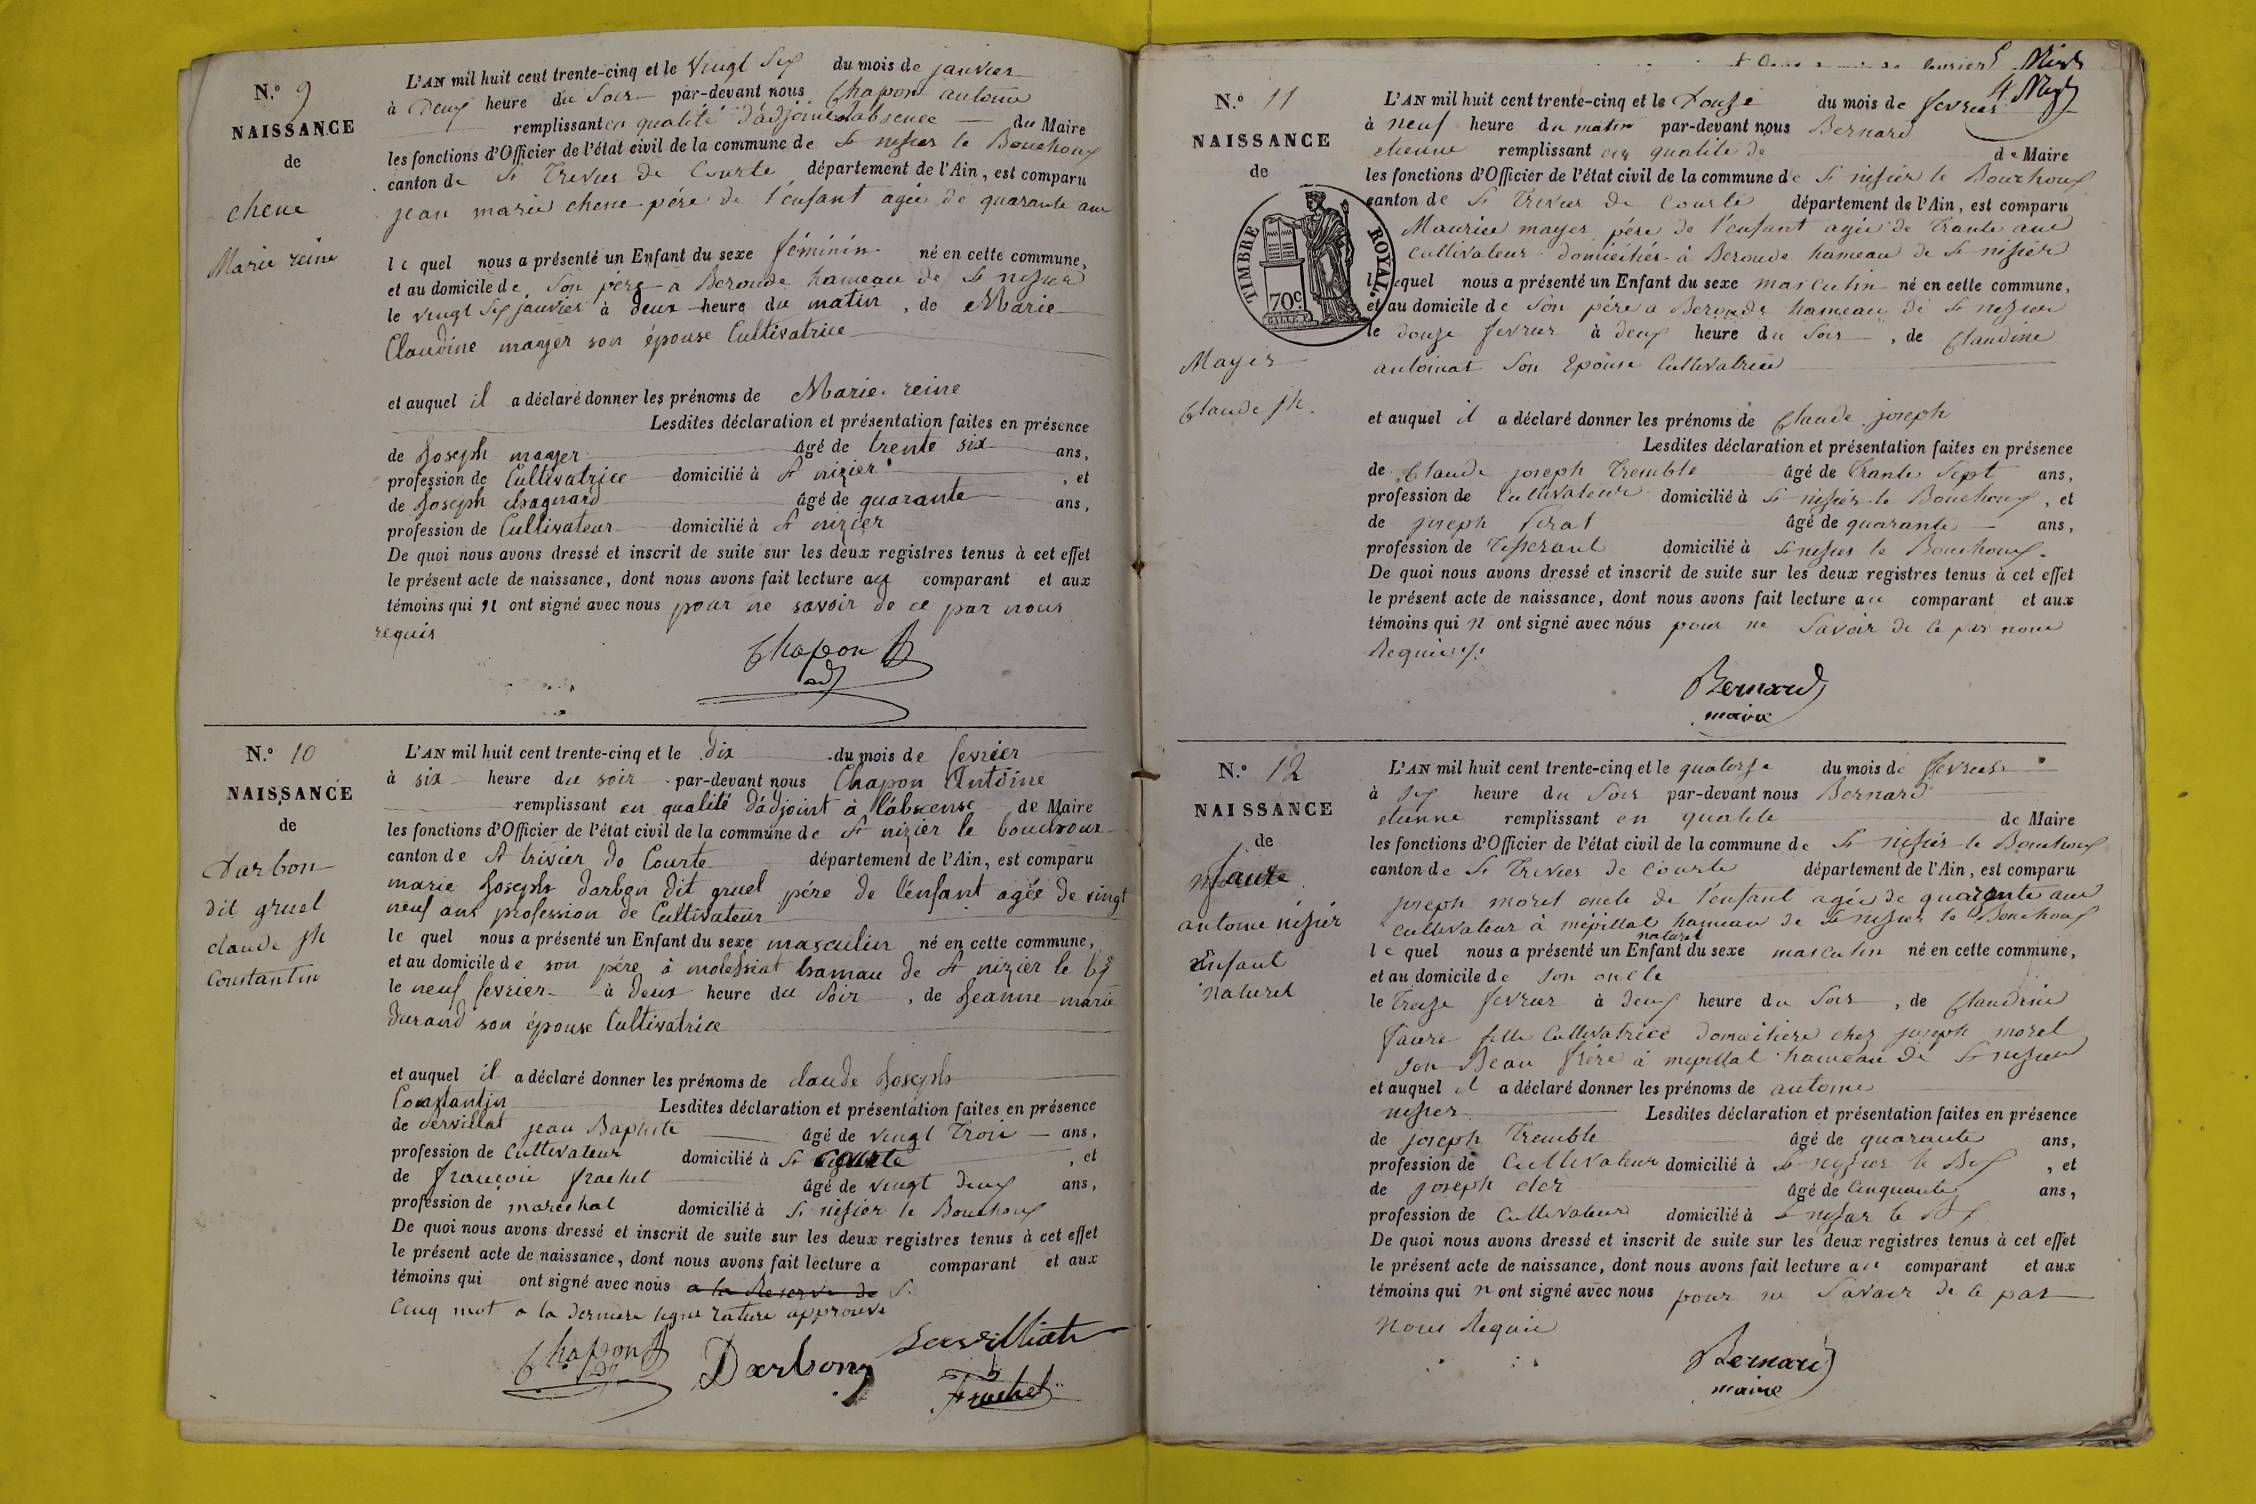 N.o 9
NAISSANCE
de
chene
Marie reine
L'AN mil huit cent trente-cinq et le vingt six du mois de janvier
à deux heure du soir par-devant nous Chapon antoine
remplissant en qualité d'adjoint labsence du Maire
les fonctions d'Officier de l'état civil de la commune de St nisier le Bouchoux
canton de St Trivier de Courte département de l'Ain, est comparu
jean marie chene pére de l'enfant agée de quarante ans
le quel nous a présenté un Enfant du sexe féminin né en cette commune,
et au domicile de son pére a Beroude hameau de St nisier
le vingt six janvier à deux heure du matin, de Marie
Claudine mayer son épouse Cultivatrice
et auquel il a déclaré donner les prénoms de Marie reine
Lesdites déclaration et présentation faites en présence
de Joseph mayer âgé de trente six ans,
profession de Cultivatrice domicilié à St nizier, et
de Joseph chagnard âgé de quarante ans,
profession de Cultivateur domicilié à St nizier
De quoi nous avons dressé et inscrit de suite sur les deux registres tenus à cet effet
le présent acte de naissance, dont nous avons fait lecture au comparant et aux
témoins qui n ont signé avec nous pour ne savoir de ce par nous
requis
Chapon A
adj
N.o 10
NAISSANCE
de
Darbon
dit gruel
claude jh
Constantin
L'AN mil huit cent trente-cinq et le dix du mois de fevrier
à six heure du soir par-devant nous Chapon Antoine
remplissant en qualité d'adjoint à l'absense de Maire
les fonctions d'Officier de l'état civil de la commune de St nizier le bouchoux
canton de St trivier de Courte département de l'Ain, est comparu
marie Joseph darbon dit gruel pére de l'enfant agée de vingt
neuf ans profession de Cultivateur
le quel nous a présenté un Enfant du sexe masculin né en cette commune,
et au domicile de son pére à molessiat hamau de St nizier le bx
le neuf fevrier à deux heure du soir, de Jeanne marie
durand son épouse Cultivatrice
et auquel il a déclaré donner les prénoms de claude Joseph
Constantin Lesdites déclaration et présentation faites en présence
de Servillat jean Baptiste âgé de vingt trois ans,
profession de Cultivateur domicilié à St, et
de françois frachet âgé de vingt deux ans,
profession de maréchal domicilié à St nisier le Bouchoux
De quoi nous avons dressé et inscrit de suite sur les deux registres tenus à cet effet
le présent acte de naissance, dont nous avons fait lecture a comparant et aux
témoins qui ont signé avec nous a la Reserve de S.
Cinq mot a la derniere ligne rature approuvé
Chapon A Darbon Servilliat
Frachet
N.o 11
NAISSANCE
de
TIMBRE ROYAL
70c
Mayer
Claude jh.
L'AN mil huit cent trente-cinq et le Douze du mois de fevrier
à neuf heure du matin par-devant nous Bernard
etienne remplissant en qualité de de Maire
les fonctions d'Officier de l'état civil de la commune de St nisier le Bouchoux
canton de St Trivier de Courte département de l'Ain, est comparu
Maurice mayer pére de l'enfant agée de Trante ans
Cultivateur domicilier à Beroude hameau de St nisier
lequel nous a présenté un Enfant du sexe masculin né en cette commune,
et au domicile de son pére a Beroude hameau de St nisier
le douze fevrier à deux heure du soir, de Claudine
antoinat son Epouse Cultivatrice
et auquel il a déclaré donner les prénoms de Claude joseph
Lesdites déclaration et présentation faites en présence
de Claude joseph Tremble âgé de Trante Sept ans,
profession de Cultivateur domicilié à St nisier le Bouchoux, et
de joseph âgé de quarante ans,
profession de Tisserant domicilié à St nisier le Bouchoux.
De quoi nous avons dressé et inscrit de suite sur les deux registres tenus à cet effet
le présent acte de naissance, dont nous avons fait lecture au comparant et aux
témoins qui n ont signé avec nous pour ne Savoir de ce par nous
Requis
Bernard
maire
N.o 12
NAISSANCE
de
faure
antoine nisier
Enfant
naturel
L'AN mil huit cent trente-cinq et le quatorze du mois de fevrier
à six heure du Soir par-devant nous Bernard
etienne remplissant en qualité de Maire
les fonctions d'Officier de l'état civil de la commune de St nisier le Bouchoux
canton de St Trivier de Courte département de l'Ain, est comparu
joseph morel oncle de l'enfant agée de quarante ans
cultivateur à mépillat hameau de St nisier le Bouchoux
naturel
le quel nous a présenté un Enfant du sexe masculin né en cette commune,
et au domicile de son oncle
le Treize fevrier à deux heure du Soir, de Claudine
faure fille Cultivatrice domiciliere chez joseph morel
son Beau frére à mepillat hameau de St nisier
et auquel il a déclaré donner les prénoms de antoine
nisier Lesdites déclaration et présentation faites en présence
de joseph Tremble âgé de quarante ans,
profession de Cultivateur domicilié à St nisier le Bx, et
de joseph âgé de Cinquante ans,
profession de Cultivateur domicilié à St nisier le Bx
De quoi nous avons dressé et inscrit de suite sur les deux registres tenus à cet effet
le présent acte de naissance, dont nous avons fait lecture au comparant et aux
témoins qui n ont signé avec nous pour ne Savoir de ce par
nous Requis
Bernard
maire